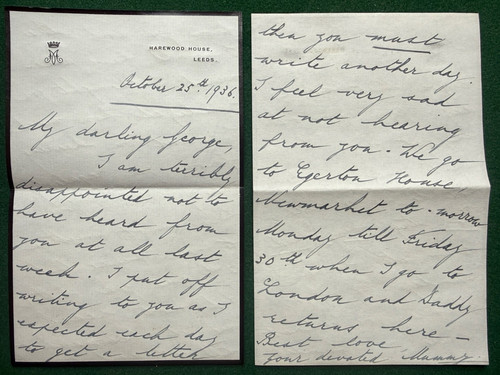 M
HAREWOOD HOUSE,
LEEDS.
October 25th 1936.
My darling George,
I am terribly
disappointed not to
have heard from
you at all last
week. I put off
writing to you as I
expected each day
to get a letter
then you must
write another day.
I feel very sad
at not hearing
from you. We go
to Egerton House
Newmarket to-morrow
Monday till Friday
30th when I go to
London and Daddy
returns here -
Best love
your devoted Mummy.